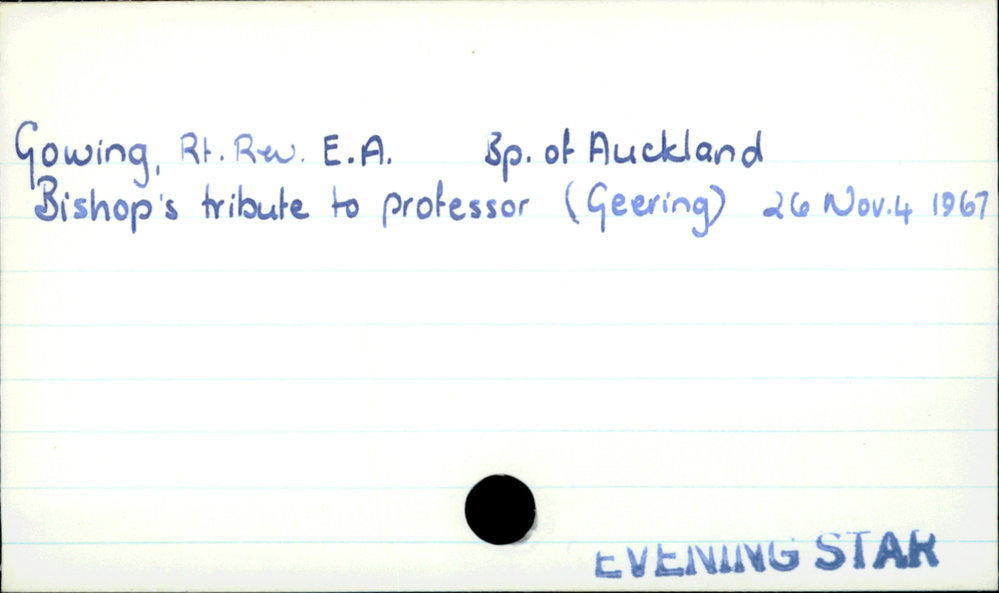 Gowing, Rt. Rev. E.A. Bp. of Auckland
Bishop's tribute to professor (Geering) 26 Nov. 4 1967
EVENING STAR